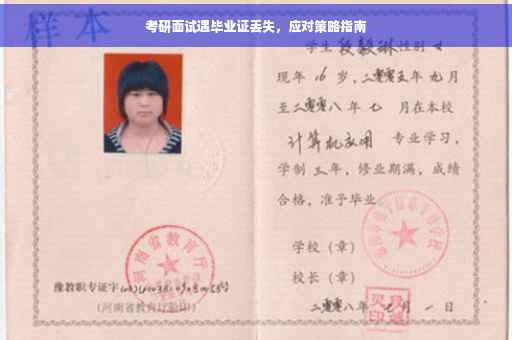 考研面试遇毕业证丢失，应对策略指南
样本
学生段毅琳性别女
现年16岁，二零零五年九月
至二零零八年七月在本校
计算机应用 专业学习，
学制三年，修业期满，成绩
合格，准予毕业。
学校（章）
校长（章）
二零零八年七月一日
河南省教育厅
豫教职专证字
（河南省教育厅验印）